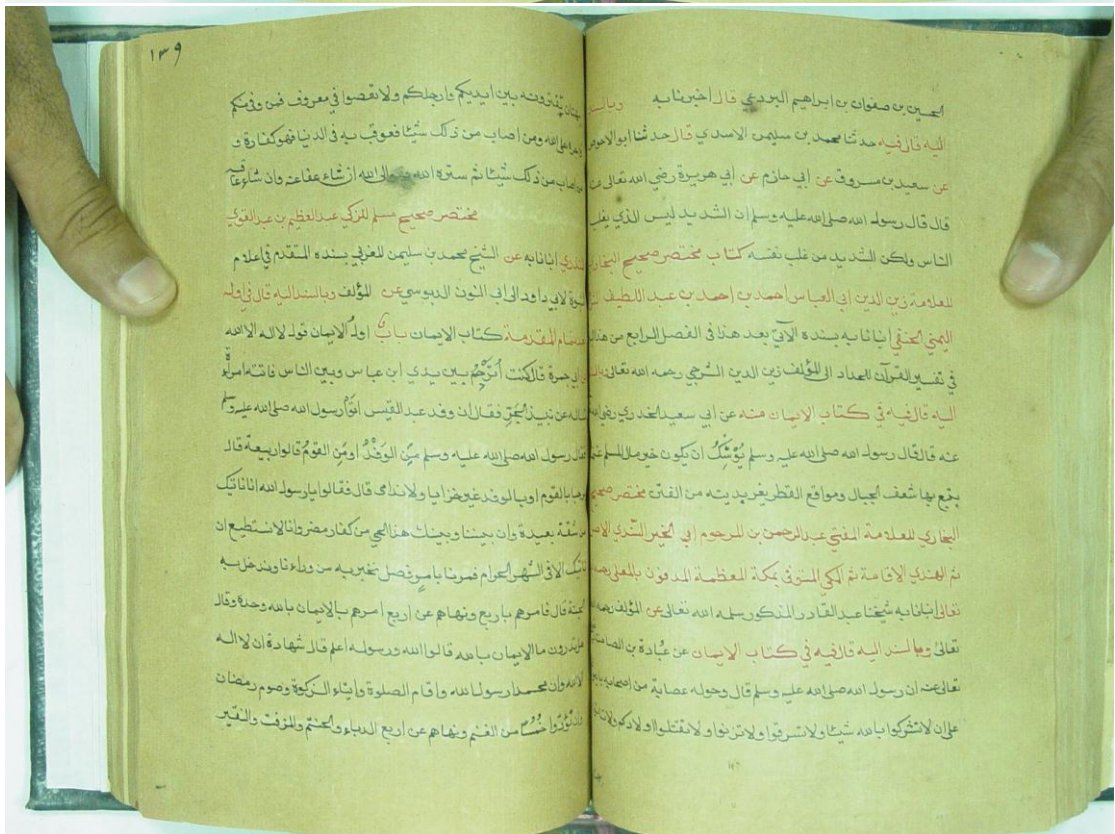 الحسين بن صفوان بن ابراهيم البردعي قال اخبرنا به وبالسند
اليه قال فيه حدثنا محمد بن سليمن الاسدي قال حدثنا ابو الاحوص
عن سعيد بن مسروق عن ابي حازم عن ابي هريرة رضي الله تعالى عنه
قال قال رسول الله صلى الله عليه وسلم ان الشديد ليس الذي يغلب
الناس ولكن الشديد من غلب نفسه كتاب مختصر صحيح البخاري
للعلامة زين الدين ابي العباس احمد بن احمد بن عبد اللطيف
اليمني الحنفي انبانا به بسنده الآتي بعد هذا في الفصل الرابع من هذا
في تفسير القرآن للحداد الى المؤلف زين الدين الشرجي رحمه الله تعالى
اليه قال فيه في كتاب الايمان منه عن ابي سعيد الخدري رضي الله
عنه قال قال رسول الله صلى الله عليه وسلم يُوْشِكُ ان يكون خير مال المسلم
يتبع بها شعف الجبال ومواقع القطر يفر بدينه من الفتن مختصر صحيح
البخاري للعلامة المفتي عبد الرحمن بن المرحوم ابي الخير السندي
ثم الهندي الاقامة ثم المكي المتوفى بمكة المعظمة المدفون بالمعلى رحمه
تعالى انبانا به شيخنا عبد القادر المذكور سلمه الله تعالى عن المؤلف رحمه
تعالى وبالسند اليه قال فيه في كتاب الايمان عن عُبادة بن الصامت
تعالى عنه ان رسول الله صلى الله عليه وسلم قال وحوله عصابة من اصحابه
على ان لا تشركوا بالله شيئا ولا تسرقوا ولا تزنوا ولا تقتلوا اولادكم ولا
١٣٩
ببهتان تفترونه بين ايديكم وارجلكم ولا تعصوا في معروف فمن وفى منكم
فاجره على الله ومن اصاب من ذلك شيئا فعوقب به في الدنيا فهو كفارة و
من اصاب من ذلك شيئا ثم ستره الله فهو الى الله ان شاء عفا عنه وان شاء عاقبه
مختصر صحيح مسلم للزكي عبد العظيم بن عبد القوي
المنذري انبانا به عن الشيخ محمد بن سليمن المغربي بسنده المتقدم في اعلام
النبوة لابي داود الى ابي النون الدبوسي عن المؤلف وبالسند اليه قال في اوله
المقدمة كتاب الايمان باب اول الايمان قول لا اله الا الله
عن ابي جمرة قال كنت أُتَرْجِمُ بين يدي ابن عباس وبين الناس فاتته امرأة
تساله عن نبيذ الجَرِّ فقال ان وفد عبد القيس اتوا رسول الله صلى الله عليه وسلم
فقال رسول الله صلى الله عليه وسلم مَنِ الوَفْدُ او مَنِ القومُ قالوا ربيعة قال
مرحبا بالقوم او بالوفد غير خزايا ولا ندامى قال فقالوا يا رسول الله انا ناتيك
من شقة بعيدة وان بيننا وبينك هذا الحي من كفار مضر وانا لا نستطيع ان
ناتيك الا في الشهر الحرام فمرنا بامر فصل نخبر به من وراءنا وندخل به
الجنة قال فامرهم باربع ونهاهم عن اربع امرهم بالايمان بالله وحده وقال
هل تدرون ما الايمان بالله قالوا الله ورسوله اعلم قال شهادة ان لا اله
الا الله وان محمدا رسول الله واقام الصلوة وايتاء الزكوة وصوم رمضان
وان تُؤَدُّوا خُمُسًا من الغنم ونهاهم عن اربع الدباء والحنتم والمزفت والنقير